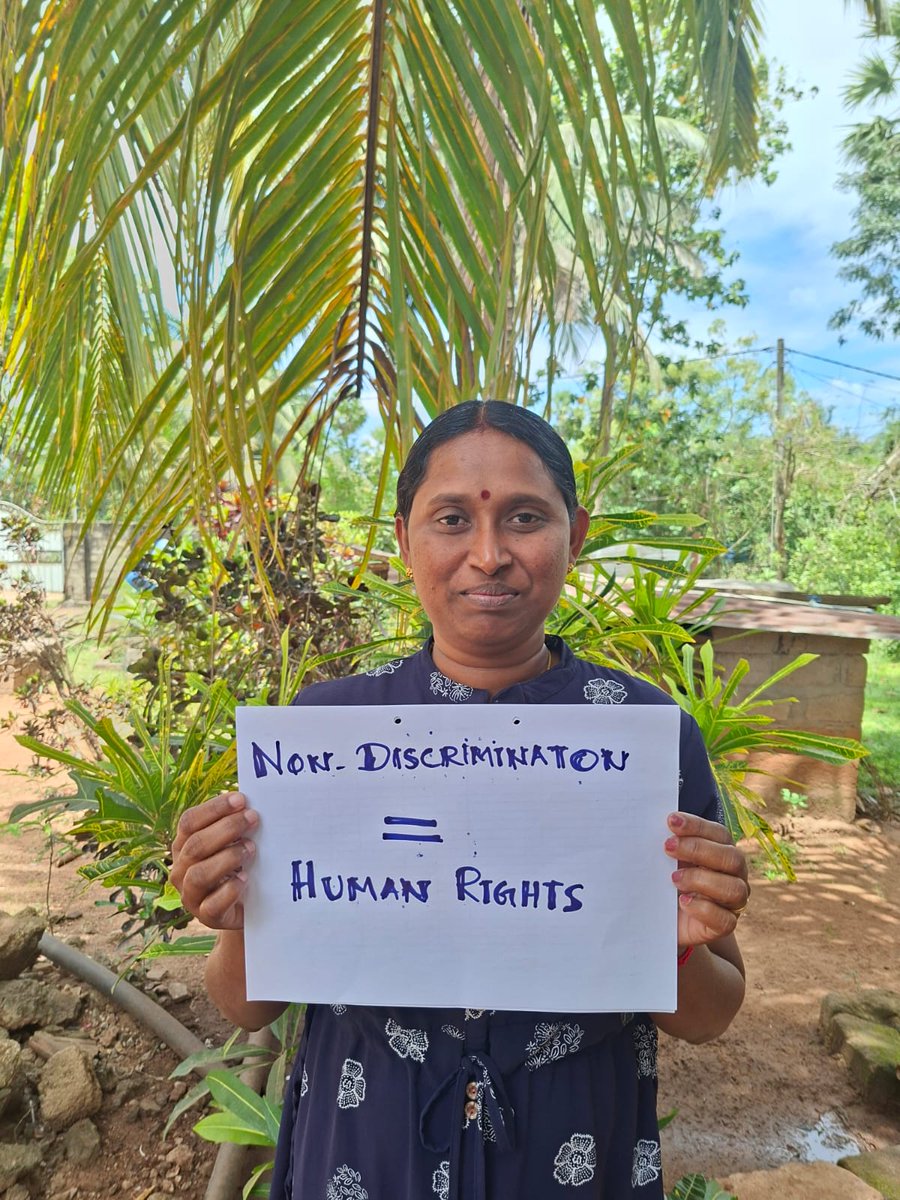 NON-DISCRIMINATON
=
HUMAN RIGHTS